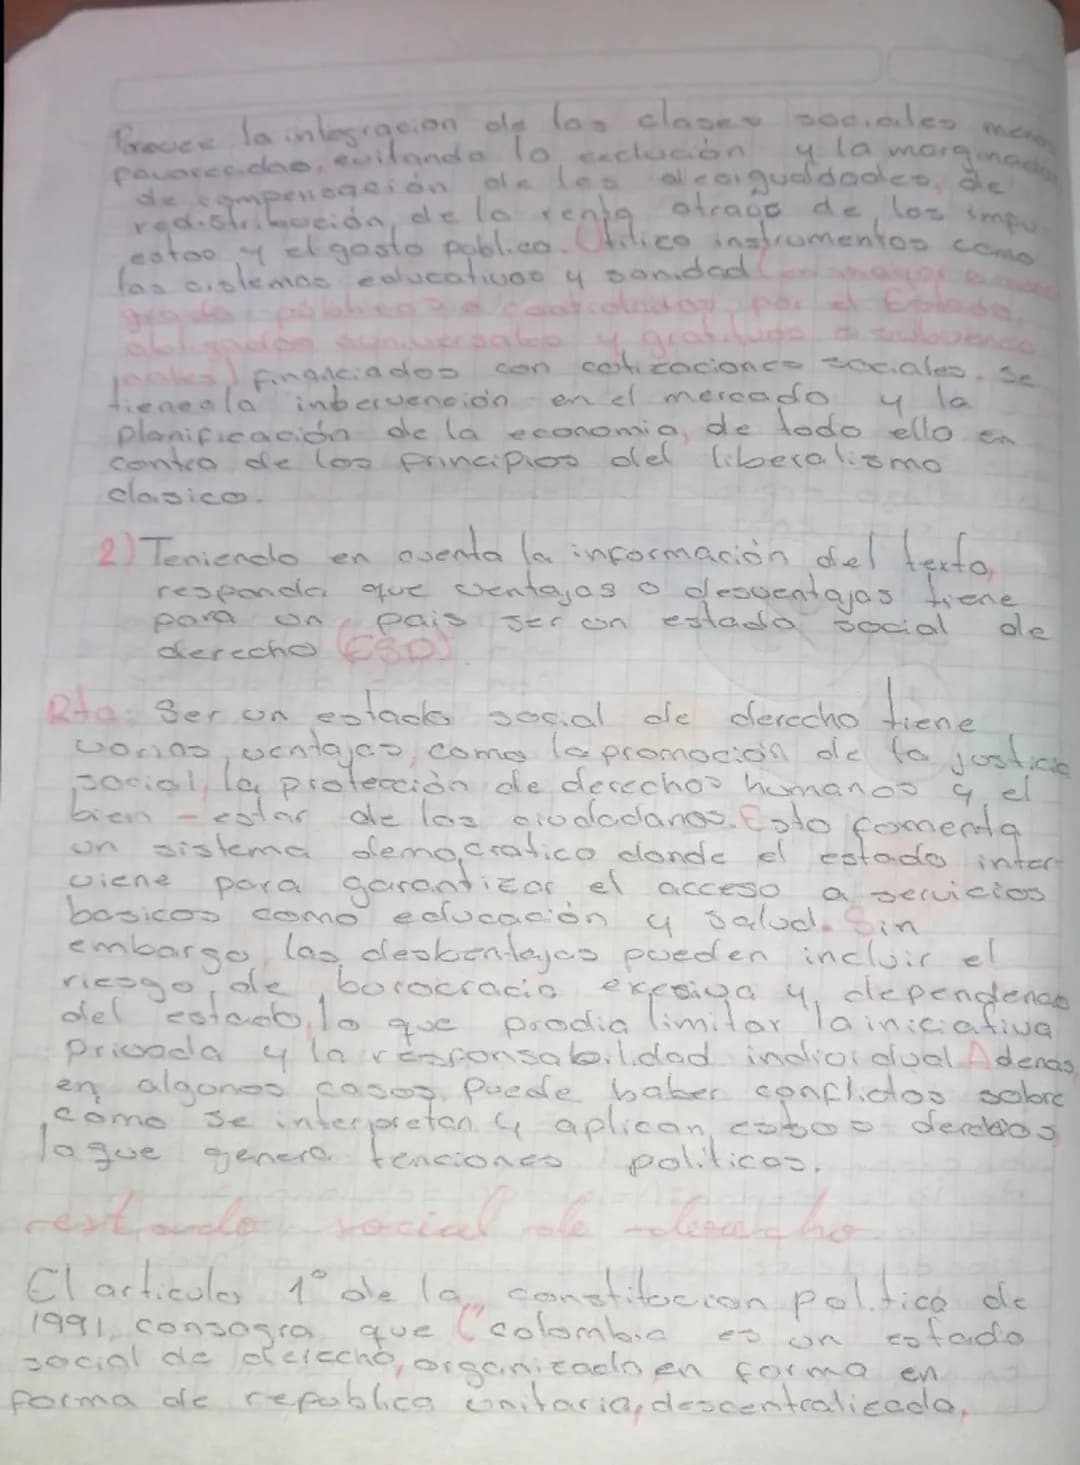 Provee la integracion de las clases sociales menos
favorecidas, evitando la exclución y la marginación
de compensación de las desigualdades, de
redistribución, de la renta atraves de los impu
estos y el gasto publico. Utilico instrumentos como
los sistemas educativos y sanidad (en mayor o menor
grado públicos o controlados por el Estado,
obligados universales y gratituos o subvencio
nales) financiados con cotizaciones sociales. Se
tiene la intervención en el mercado y la
planificación de la economia, de todo ello en
contra de los principios del liberalismo
clasico.
2) Teniendo en cuenta la información del texto,
responda que ventajas o desventajas tiene
para un pais ser un estado social de
derecho (ESD)
Rta: Ser un estado social de derecho tiene
varias ventajas, como la promoción de la justicia
social, la protección de derechos humanos y el
bien - estar de los ciudadanos. Esto fomenta
un sistema democratico donde el estado inter-
viene para garantizar el acceso a servicios
basicos como educación y salud. Sin
embargo, las desbentajas pueden incluir el
riesgo de borocracia exesiva y dependencia
del estado, lo que prodia limitar la iniciativa
privada y la responsabilidad individual. Ademas
en algunos casos, puede haber conflictos sobre
como se interpretan y aplican estos derechos
lo que genera tenciones politicas.
estado social de derecho
El articulo 1° de la constitucion politica de
1991, consagra que "colombia es un estado
social de derecho, organizado en forma en
forma de republica unitaria, descentralizada,